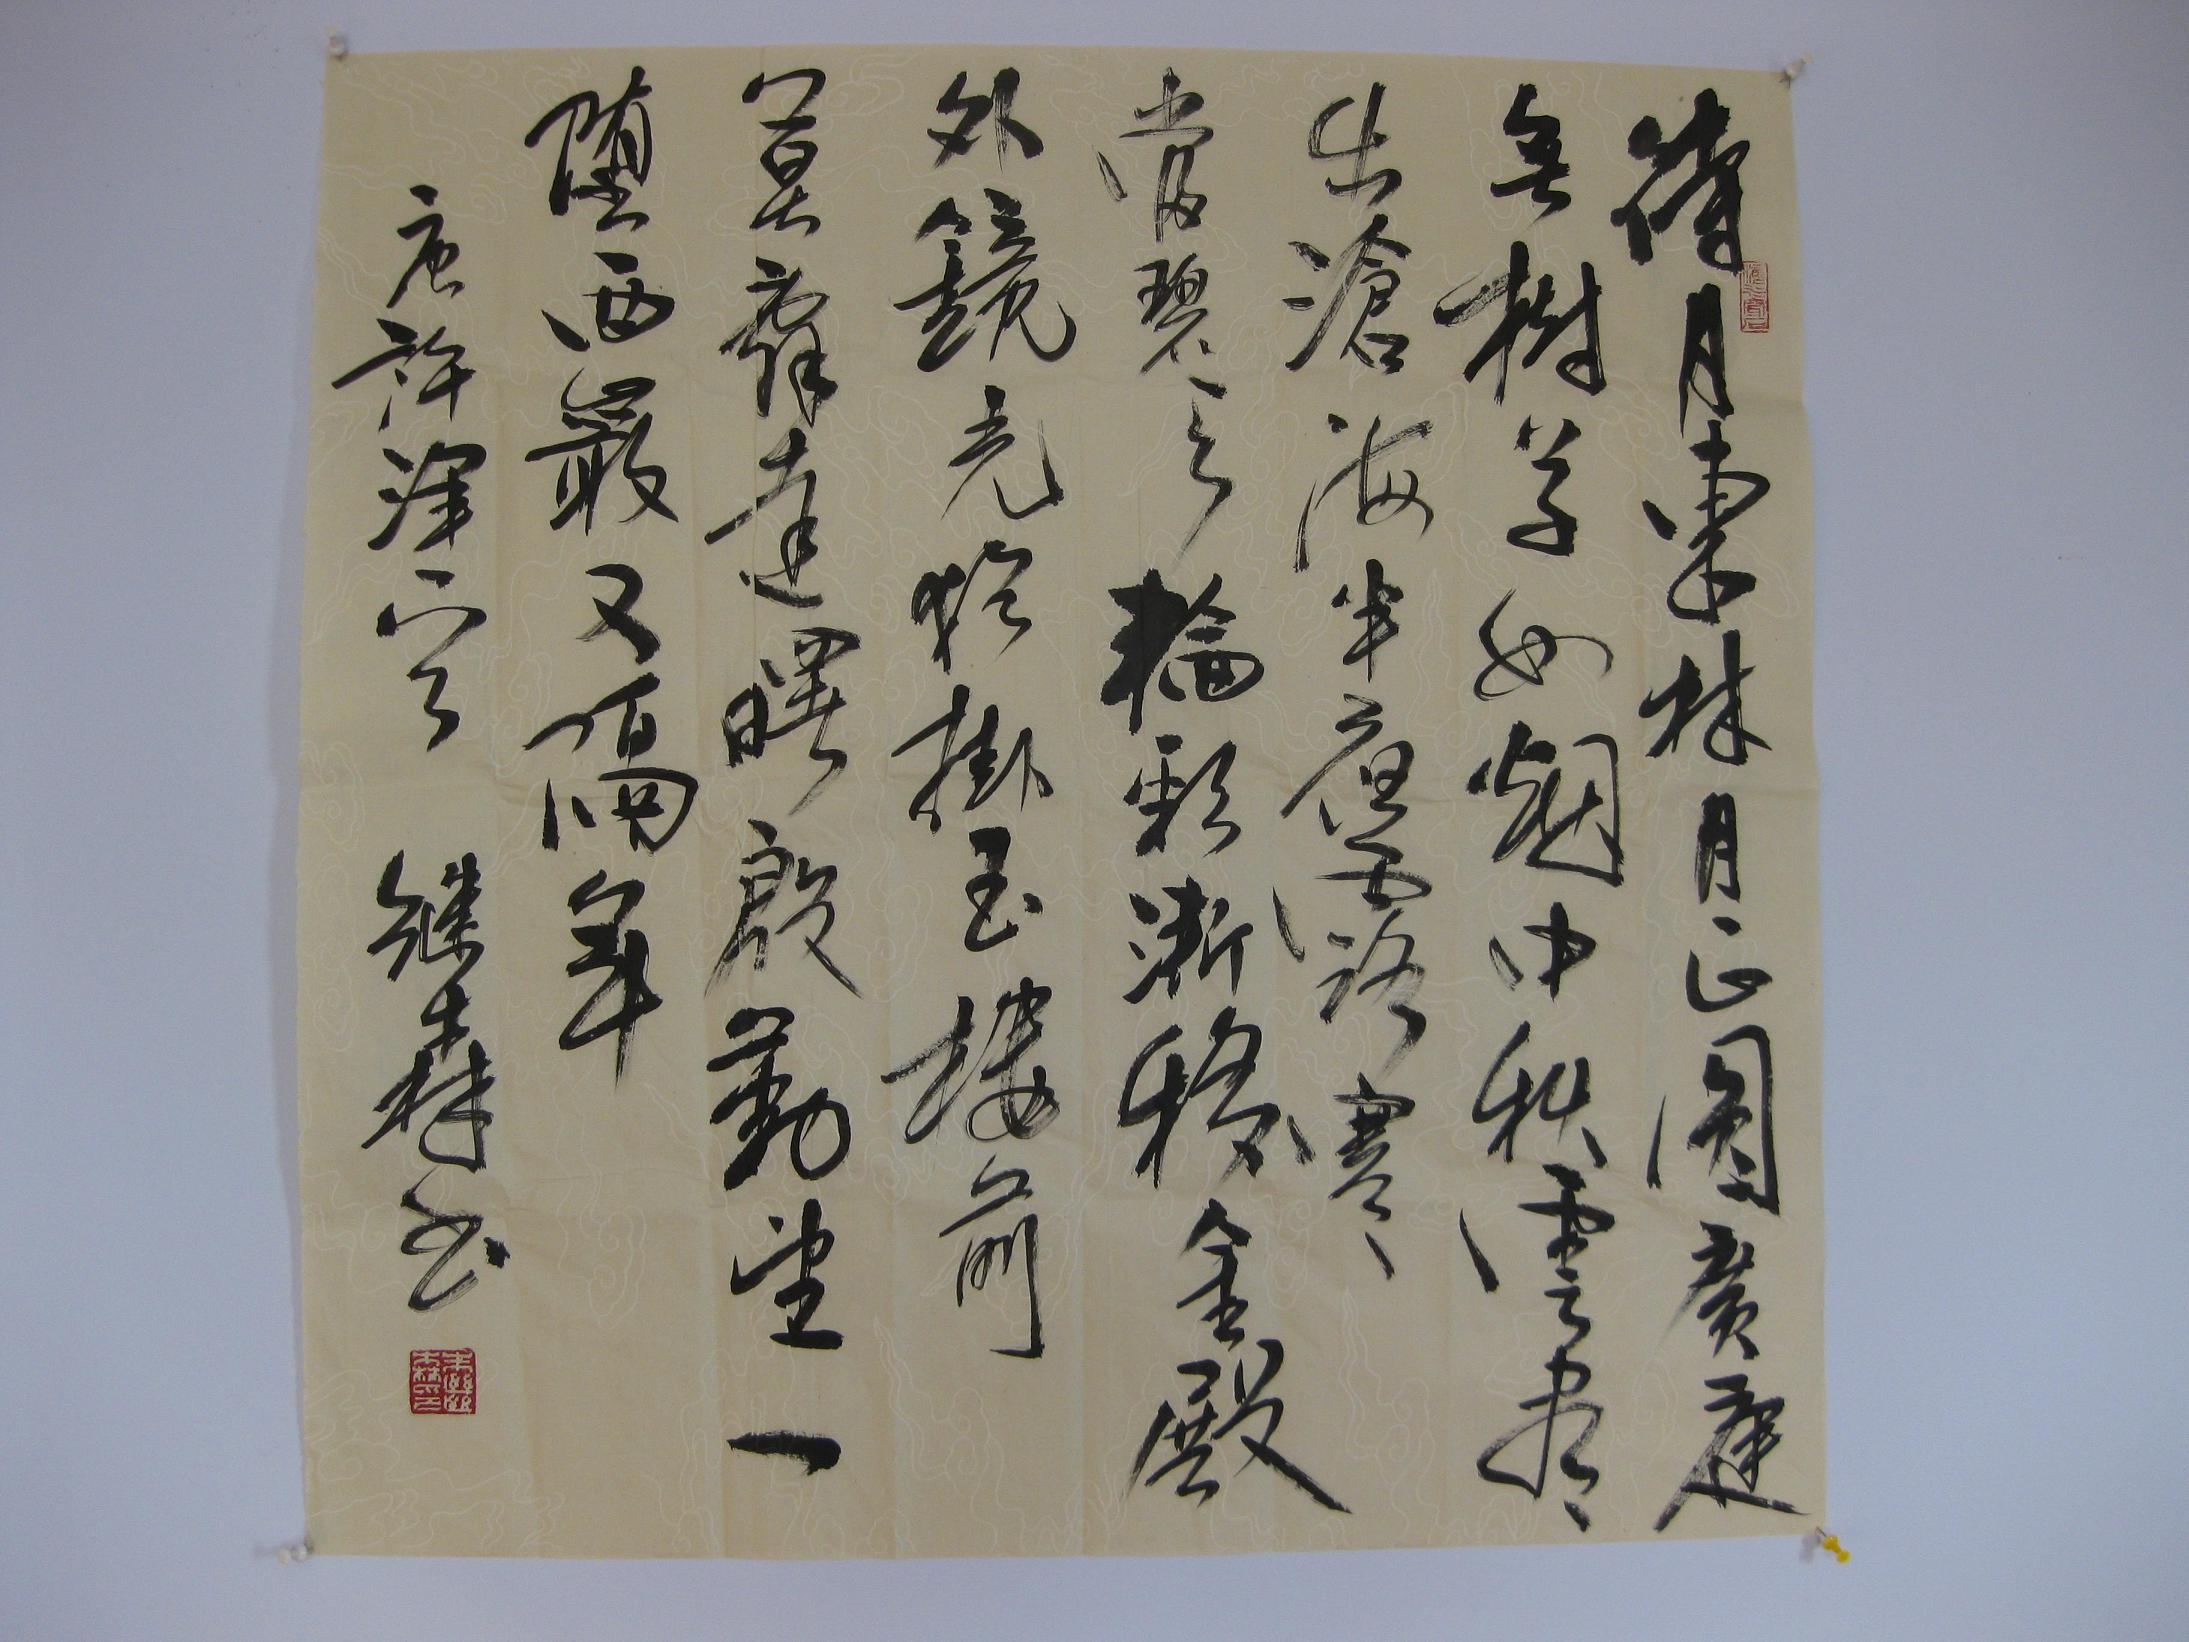 待月東林月正圓廣庭
無樹草如烟中秋雲盡
出滄海半夜露寒
當碧天輪彩漸移金殿
外鏡光猶掛玉樓前
莫辭達曙殷勤望一
墮西巖又隔年
唐許渾 继森书